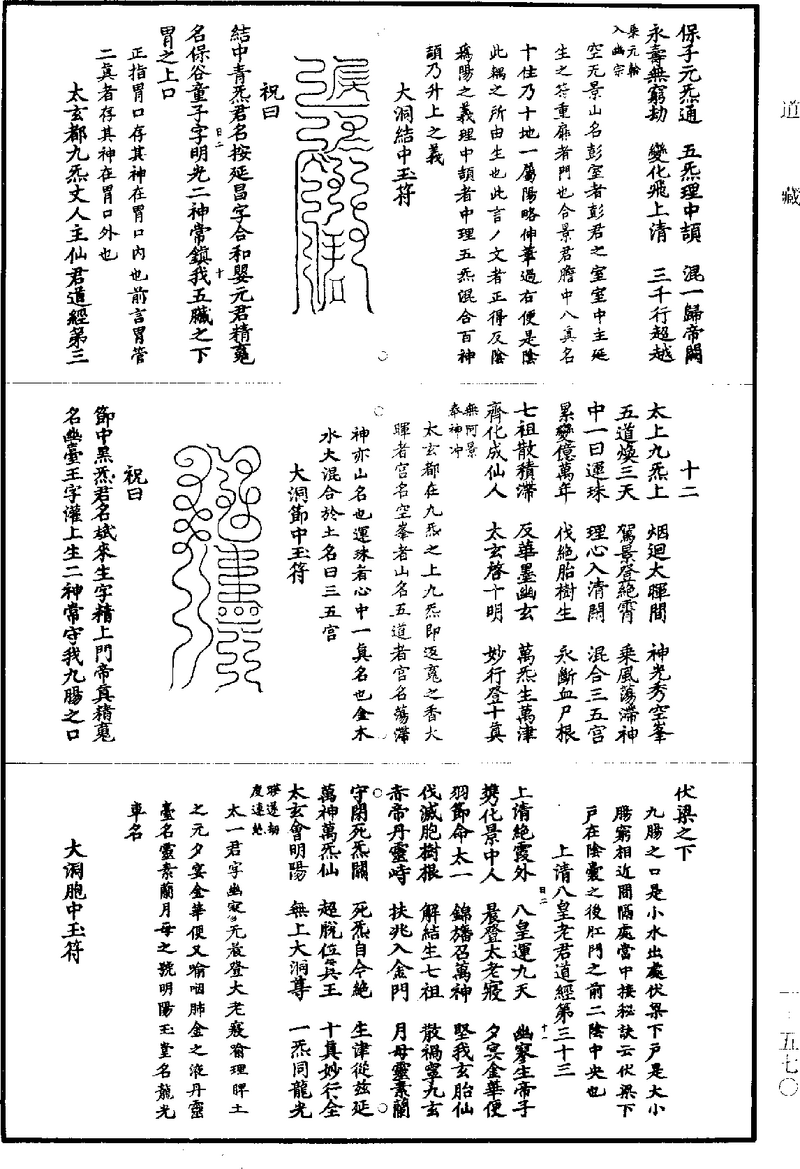 道藏
一・五七〇
保子元炁通　五炁理中頡　混一歸帝闕
永壽無窮劫　變化飛上清　三千行超越
入幽宗
空无景山名彭室者彭君之室室中主延
生之符重扉者門也合景君膽中八真名
十住乃十地一屬陽略伸華過右便是陰
此耦之所由生也此言丿文者正得反陰
為陽之義理中頡者中理五炁混合百神
頡乃升上之義
大洞結中玉符
祝曰
結中青炁君名按延昌字合和嬰元君精䰟
名保谷童子字明光二神常鎮我五臟之下
胃之上口
正指胃口存其神在胃口內也前言胃管
二真者存其神在胃口外也
太玄都九炁丈人主仙君道經第三
十二
太上九炁上　烟迴太暉間　神光秀空峯
五道煥三天　駕景登絕霄　乘風蕩滯神
中一曰運珠　理心入清闕　混合三五宮
累變億萬年　伐絕胎樹生　永斷血尸根
七祖散積滯　反華墨幽玄　萬炁生萬津
齊化成仙人　太玄啓十明　妙行登十真
無阿景
奉神冲
太玄都在九炁之上九炁即返䰟之香大
暉者宮名空峯者山名五道者宮名蕩滯
神亦山名也運珠者心中一真名也金木
水火混合於土名曰三五宮
大洞節中玉符
祝曰
節中黑炁君名斌來生字精上門帝真精䰟
名幽臺王字灌上生二神常守我九腸之口
伏梁之下
九腸之口是小水出處伏梁下戶是大小
腸窮相近間隔處當中接秘訣云伏梁下
戶在陰囊之後肛門之前二陰中央也
上清八皇老君道經第三十三
上清絕霞外　八皇運九天　幽寥生帝子
攜化景中人　晨登太老寢　夕宴金華便
羽節命太一　錦旛召萬神　堅我玄胎仙
伐滅胞樹根　解結生七祖　散禍寧九玄
赤帝丹靈時　扶兆入金門　月母靈素蘭
守閉死炁關　死炁自今絕　生津從茲延
萬神萬炁仙　超脫位真王　十真妙行全
太玄會明陽　無上大洞尊　一炁同龍光
太一君字幽寥无晨登大老寢喻理脾土
之元夕宴金華便又喻咽肺金之液丹靈
臺名靈素蘭月母之號明陽玉堂名龍光
車名
大洞胞中玉符